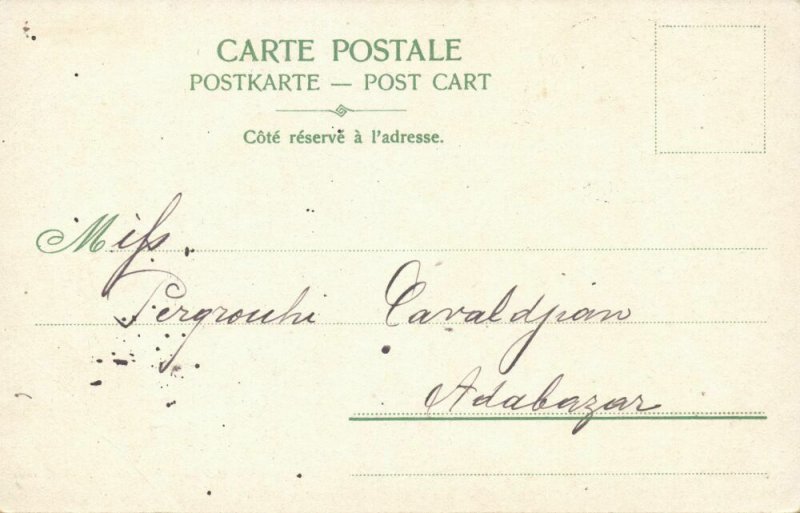 CARTE POSTALE
POSTKARTE — POST CART
Côté réservé à l'adresse.
Miss.
Pergrouhi Cavaldjian
Adabazar